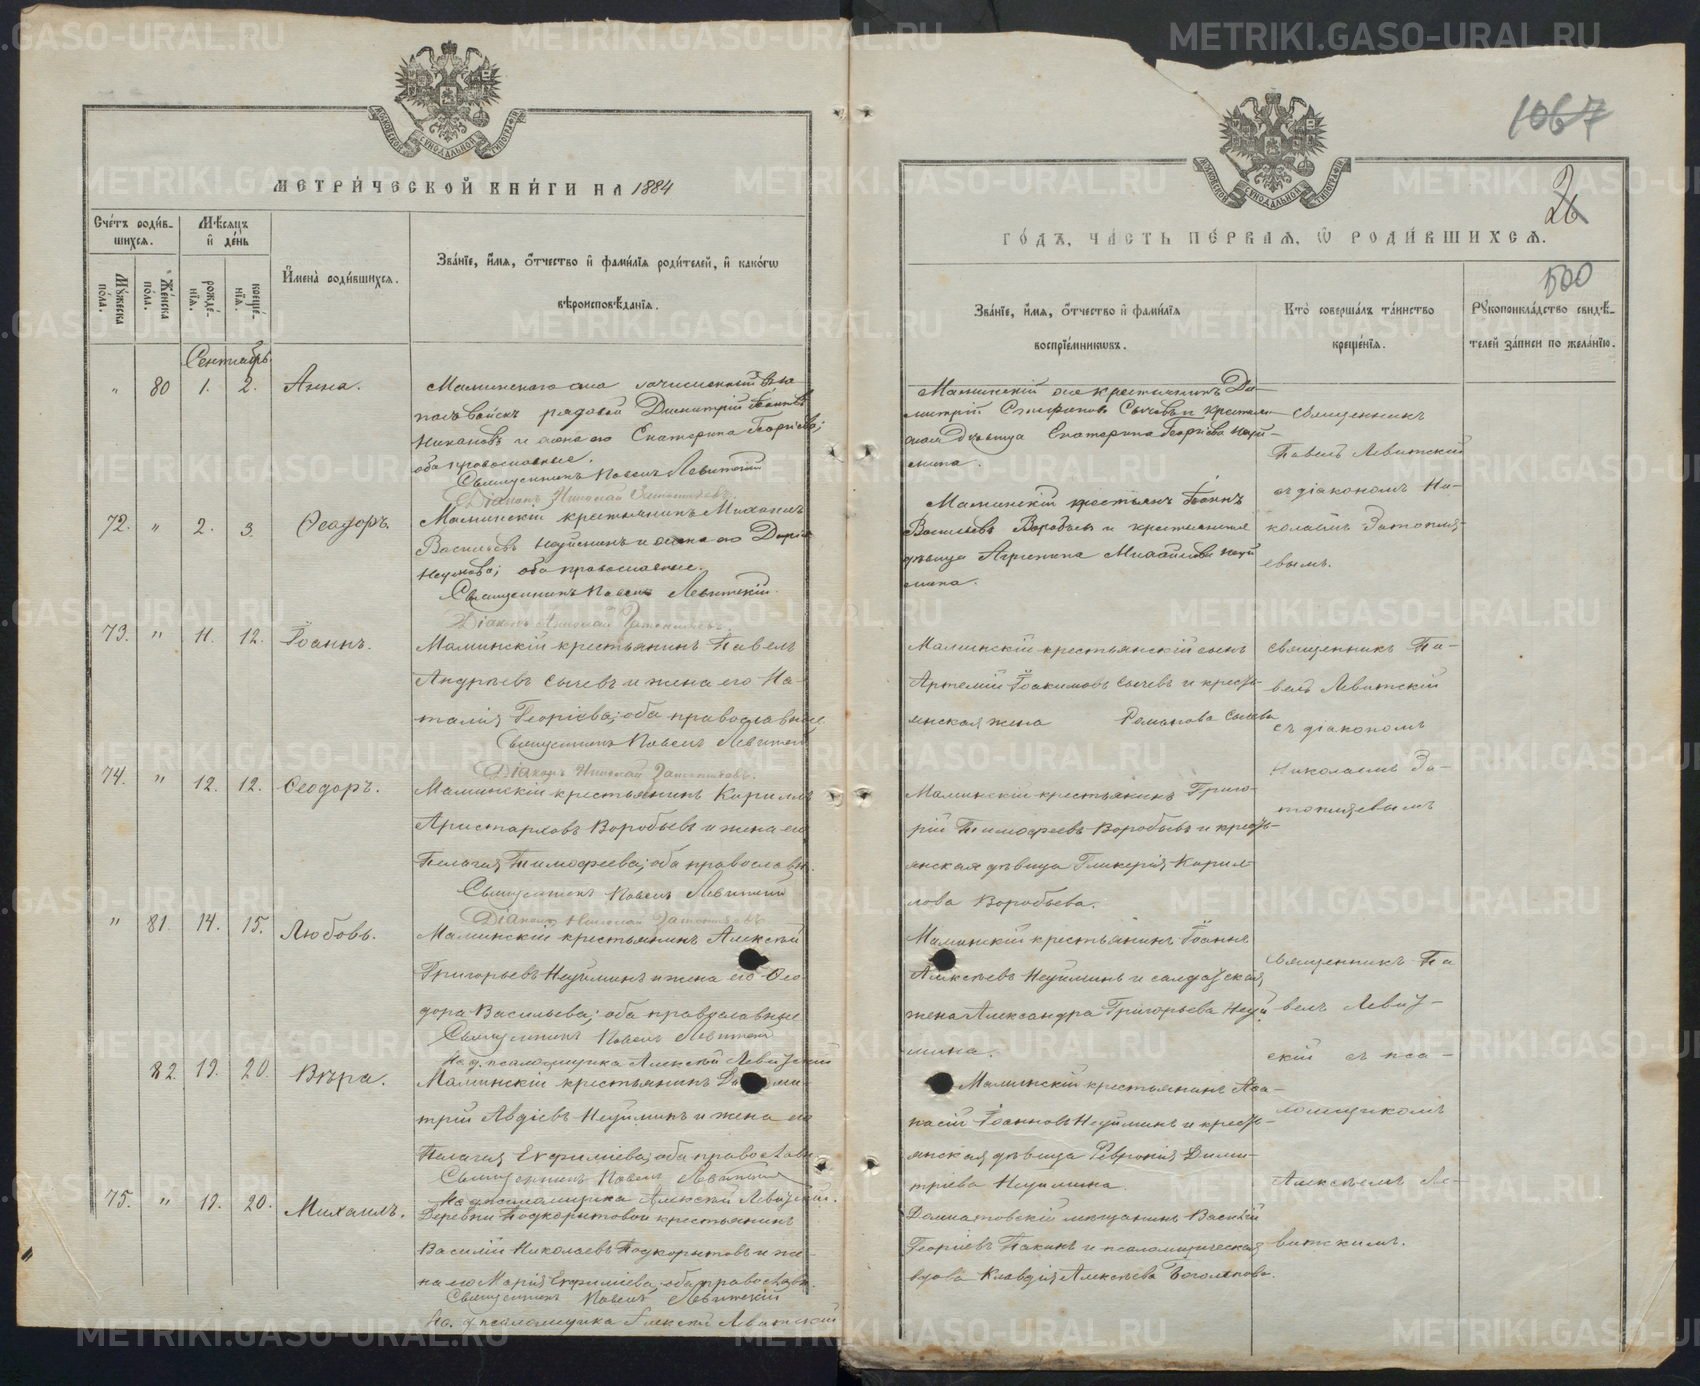 МЕТРИ́ЧЕСКОЙ КНИ́ГИ НА 1884
Сче́тъ роди́в-
шихся.
Мѣ́сяцъ
и҆ де́нь
Му́жеска
по́ла.
Же́нска
по́ла.
рожде́-
нїя.
креще́-
нїя.
И҆мена̀ роди́вшихся.
Зва́нїе, и҆́мя, ѻ҆́тчество и҆ фами́лїя роди́телей, и҆ како́гѡ
вѣроисповѣ́данїя.
Сентябрь
" 80 1. 2. Анна.
Маминскаго села зачисленный въ за-
пасъ войскъ рядовой Димитрій Іоанновъ
и жена его Екатерина Георгіева;
оба православные.
Священникъ Павелъ Левитскій
Діаконъ Николай
72. " 2. 3. Ѳеодоръ.
Маминскій крестьянинъ Михаилъ
Васильевъ Неуйминъ и жена его Дарія
Наумова; оба православные.
Священникъ Павелъ Левитскій.
Діаконъ Николай
73. " 11. 12. Іоаннъ.
Маминскій крестьянинъ Павелъ
Андреевъ Сычевъ и жена его На-
талія Георгіева; оба православные.
Священникъ Павелъ Левитскій
Діаконъ Николай
74. " 12. 12. Ѳеодоръ.
Маминскій крестьянинъ Кириллъ
Аристарховъ Воробьевъ и жена его
Пелагія Тимофеева; оба православн.
Священникъ Павелъ Левитскій
Діаконъ Николай
" 81. 14. 15. Любовь.
Маминскій крестьянинъ Алексѣй
Григорьевъ Неуйминъ и жена его Ѳео-
дора Васильева; оба православные
Священникъ Павелъ Левитскій
На д. псаломщика Алексѣй Левитскій
82. 19. 20. Вѣра.
Маминскій крестьянинъ Дими-
трій Авдіевъ Неуйминъ и жена его
Пелагія Евфиміева; оба православн.
Священникъ Павелъ Левитскій
На д. псаломщика Алексѣй Левитскій.
75. " 19. 20. Михаилъ.
Деревни Подкорытовой крестьянинъ
Василій Николаевъ Подкорытовъ и же-
на его Марія Евфиміева; оба православн.
Священникъ Павелъ Левитскій
На д. псаломщика Алексѣй Левитскій
1067
26
500
ГО́ДЪ, ЧА́СТЬ ПЕ́РВАЯ, Ѽ РОДИ́ВШИХСЯ.
Зва́нїе, и҆́мя, ѻ҆́тчество и҆ фами́лїя
воспрїе́мникѡвъ.
Кто̀ соверша́лъ та́инство
креще́нїя.
Рꙋкоприкла́дство свидѣ́-
телей за́писи по жела́нїю.
Маминскій же крестьянинъ Ди-
митрій Стефановъ Сычевъ и крестьян-
ская дѣвица Екатерина Георгіева Неуй-
мина.
Священникъ
Павелъ Левитскій
съ діакономъ Ни-
колаемъ
евымъ.
Маминскій крестьян. Іоаннъ
Васильевъ Воробьевъ и крестьянская
дѣвица Агрипина Михайлова Неуй-
мина.
Маминскій крестьянскій сынъ
Артемій Іоакимовъ Сычевъ и кресть-
янская жена Романова Сычева
священникъ Па-
велъ Левитскій
съ діакономъ
Николаемъ За-
Маминскій крестьянинъ Григо-
рій Тимофеевъ Воробьевъ и кресть-
янская дѣвица Гликерія Кирил-
лова Воробьева.
Маминскій крестьянинъ Іоаннъ
Алексѣевъ Неуйминъ и салдатская
жена Александра Григорьева Неуй-
мина.
священникъ Па
велъ Левит-
скій съ пса-
ломщикомъ
Алексѣемъ Ле-
витскимъ.
Маминскій крестьянинъ Аѳа-
насій Іоанновъ Неуйминъ и кресть-
янская дѣвица Февронія Дими-
тріева Неуймина.
Далматовскій мѣщанинъ Василій
Георгіевъ Пакинъ и псаломщическая
вдова Клавдія Алексѣева Боголѣпова.
METRIKI.GASO-URAL.RU